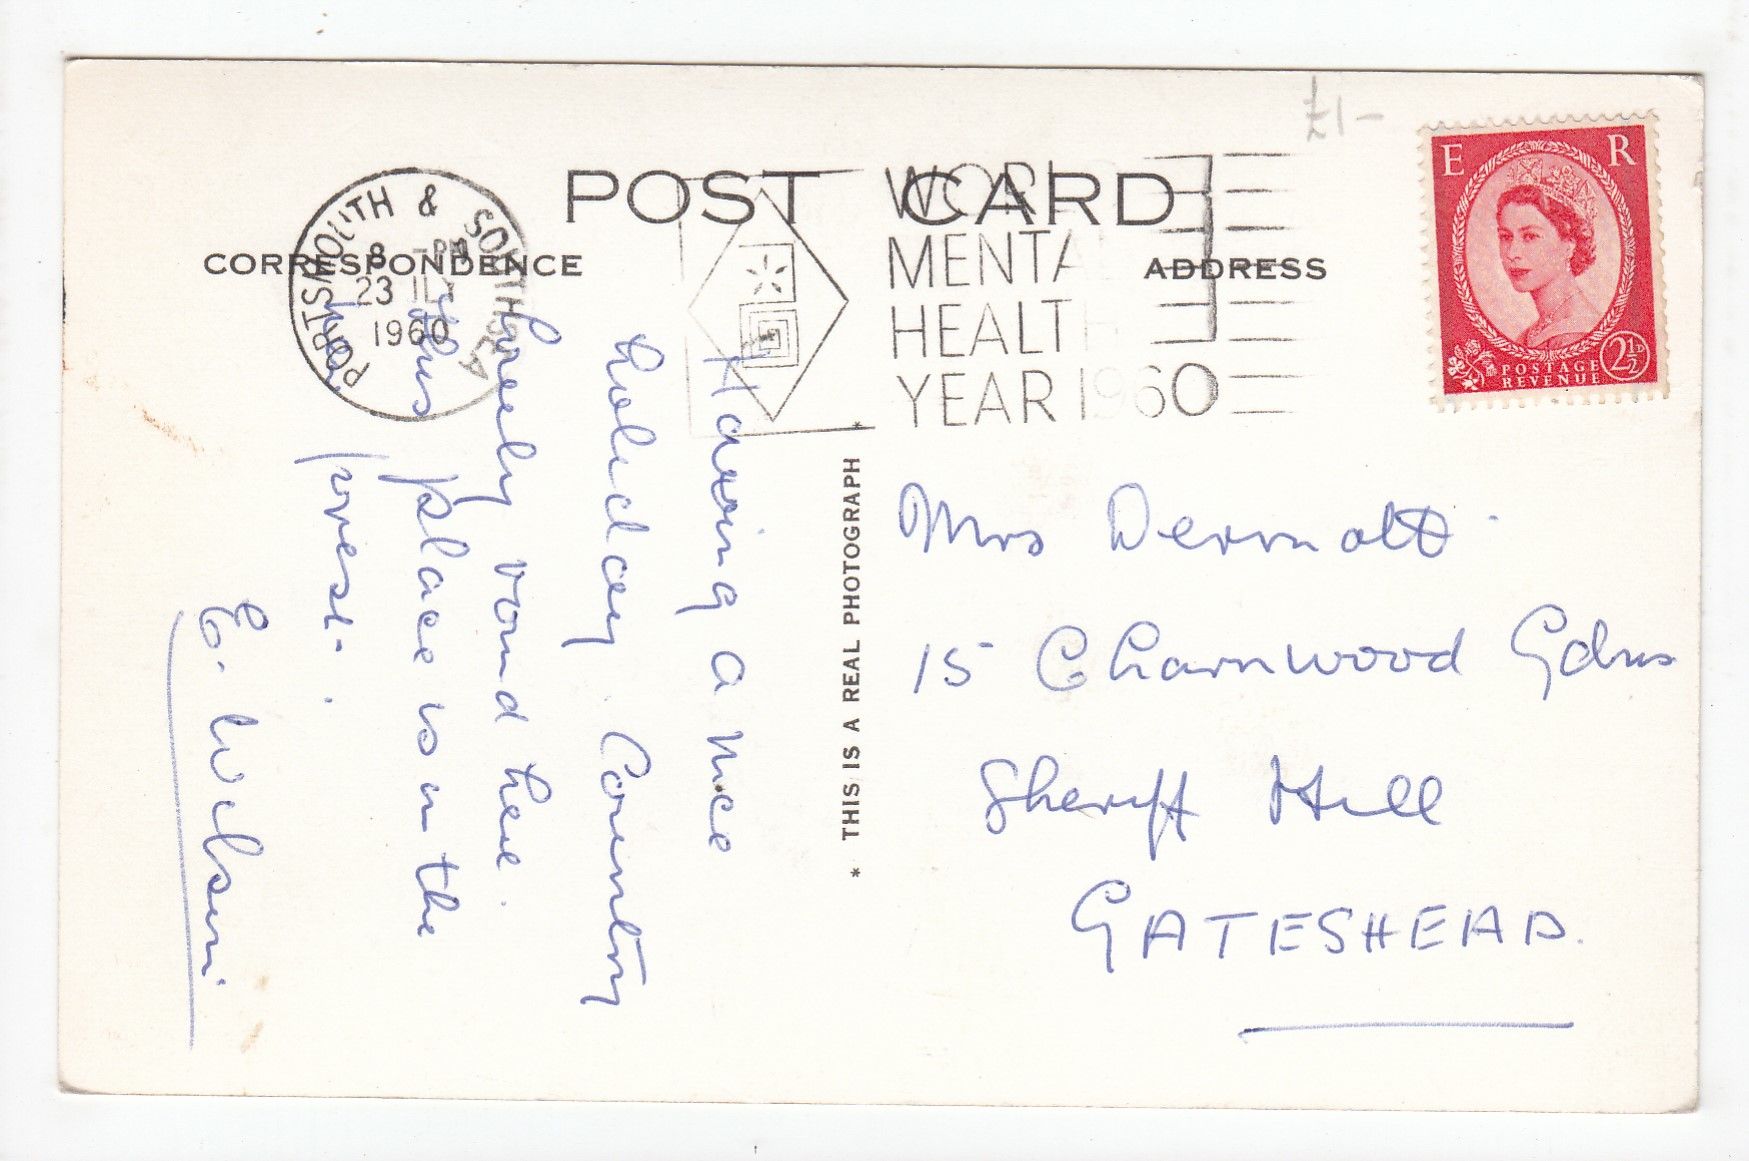 £1-
POST CARD
CORRESPONDENCE
ADDRESS
PORTSMOUTH & SOUTHSEA
8 -PM
23
1960
WORLD
MENTAL
HEALTH
YEAR 1960
E R
POSTAGE
REVENUE
2½D
* THIS IS A REAL PHOTOGRAPH *
Having a nice
holiday. Country
lovely round here.
this place is in the
forest.
E. Wilson.
Mrs Dermott
15 Charnwood Gdns
Sheriff Hill
GATESHEAD.